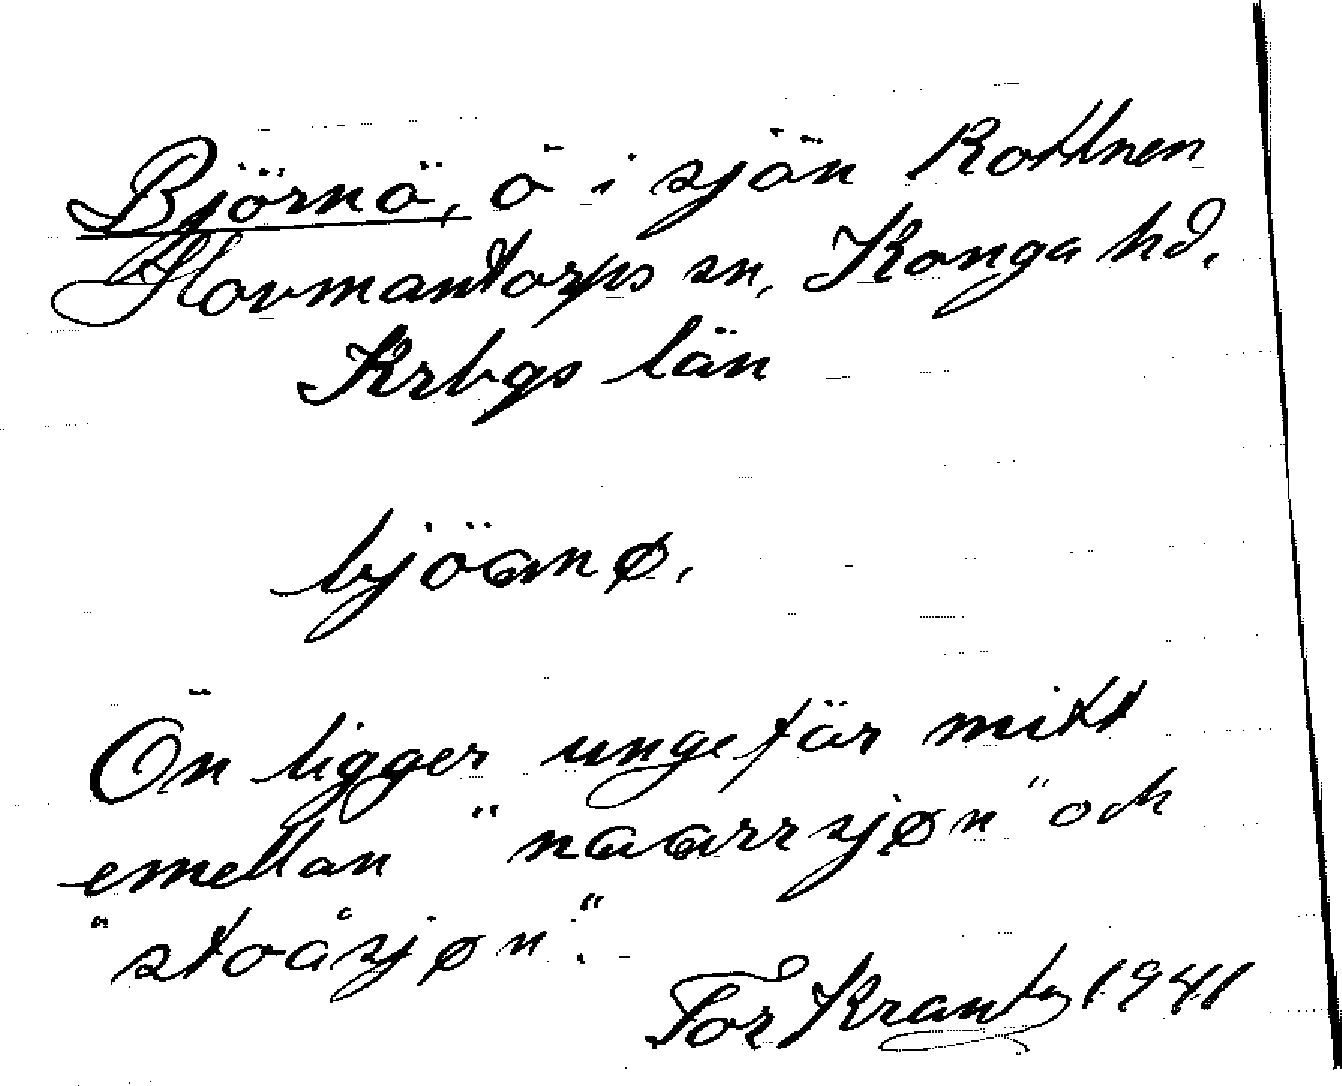 Björnö, ö i sjön Rottnen
Hovmantorps sn, Konga hd,
Krbgs län
bjöanø.
Ön ligger ungefär mitt
emellan "naarrsjøn" och
"stoåsjøn".
Tor Krantz 1941